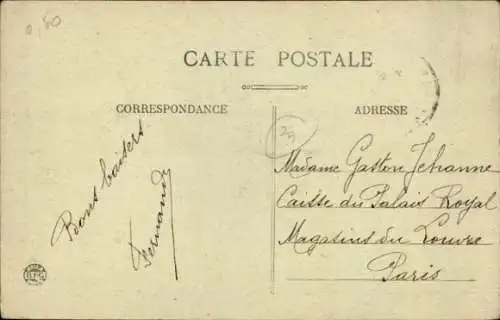 0,50
CARTE POSTALE
CORRESPONDANCE
ADRESSE
Bons baisers
Fernand
Madame Gaston Jehanne
Caisse du Palais Royal
Magasins du Louvre
Paris